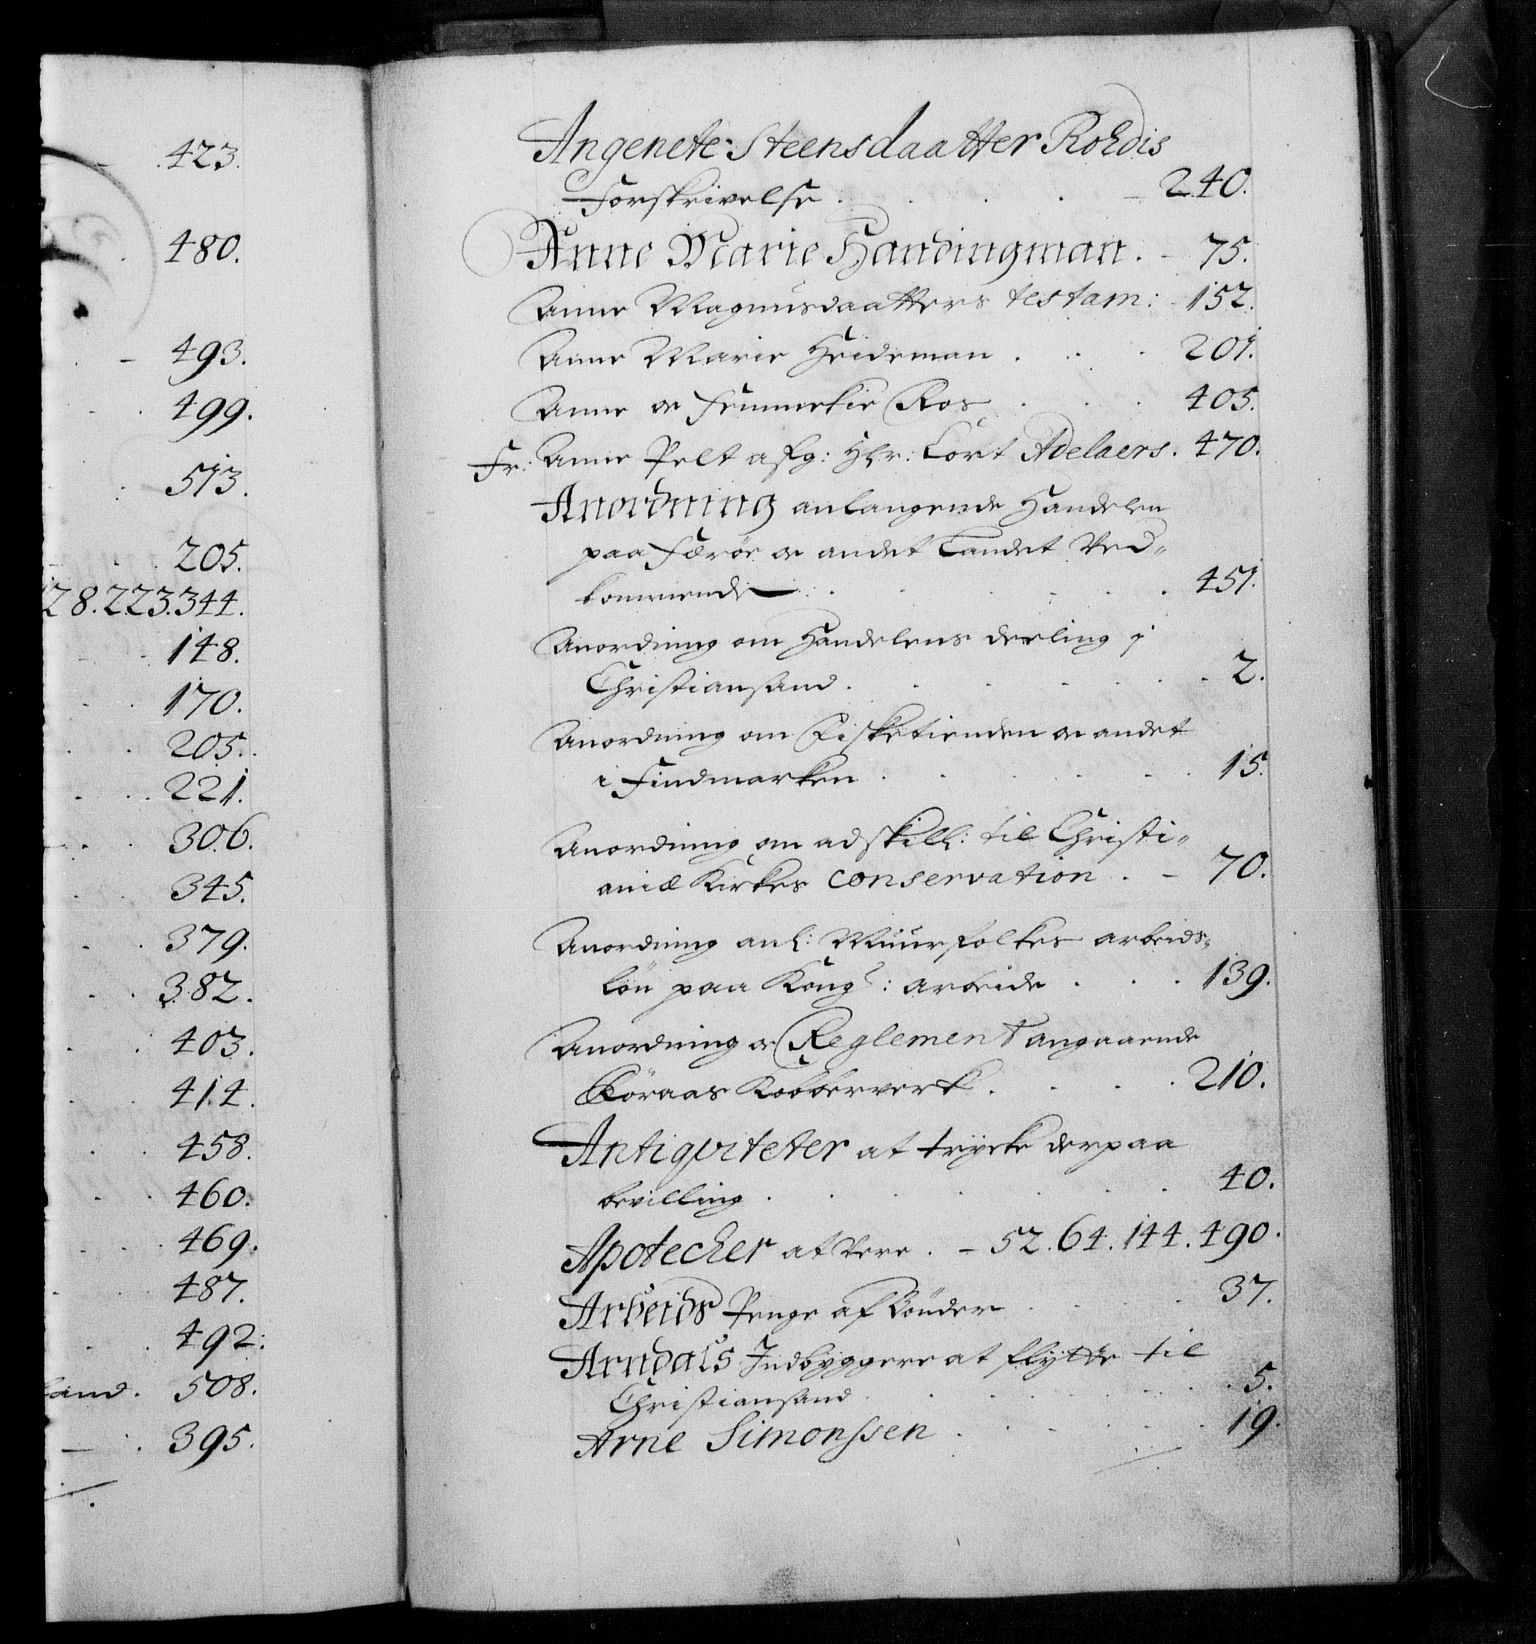 423.
480.
493.
499.
513.
205.
28.223.344.
148.
170.
205.
221.
306.
345.
379.
382.
403.
414.
458.
460.
469.
487.
492:
land. 508.
395.
Angenete Steensdaatter Rohdis
Forskrivelse . . . . 240.
Anne Marie Handingman. - 75.
Anne Magnusdaatters testam: - 152.
Anne Marie Heideman . . . 201.
Anne oc Femmekie Ros . . . 405.
Fr: Anne Pelt afg: Hr: Cort Adelaers. 470.
Anordning anlangende Handelen
paa Færøe oc andet Landet Ved„
kommende . . . . 451.
Anordning om Handelens deeling i
Christiansand . . . . 2.
Anordning om Fisketienden oc andet
i Findmarken . . . . 15.
Anordning om adskill: til Christi„
aniæ Kirkes conservation . - 70.
Anordning anl: Muurfolkes arbeids„
lön paa Kongl: arbeide . . . 139.
Anordning oc Reglement angaaende
Röraas Kobberverk . . . . 210.
Antiqviteter at trycke derpaa
bevilling . . . . 40.
Apotecher at Vere . - 52.64.144.490.
Arbeids Penge af Bönder . . . 37.
Arndals Indbyggere at flytte til
Christiansand . . . . 5.
Arne Simonssen . . . . 19.